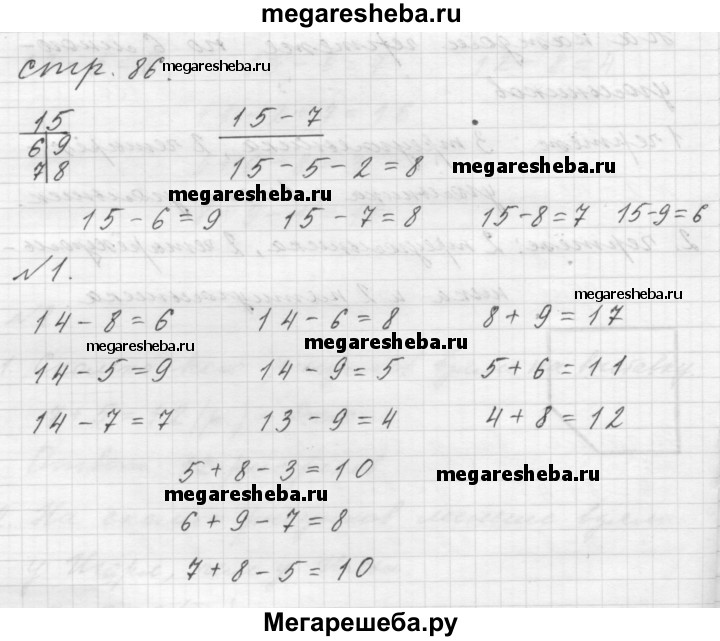 megaresheba.ru
стр. 86. megaresheba.ru
15
6 9
7 8
15 - 7
15 - 5 - 2 = 8
megaresheba.ru
megaresheba.ru
15 - 6 = 9 15 - 7 = 8 15 - 8 = 7 15 - 9 = 6
№ 1.
megaresheba.ru
14 - 8 = 6 14 - 6 = 8 8 + 9 = 17
megaresheba.ru megaresheba.ru
14 - 5 = 9 14 - 9 = 5 5 + 6 = 11
14 - 7 = 7 13 - 9 = 4 4 + 8 = 12
5 + 8 - 3 = 10 megaresheba.ru
megaresheba.ru
6 + 9 - 7 = 8
7 + 8 - 5 = 10
Мегарешеба.ру